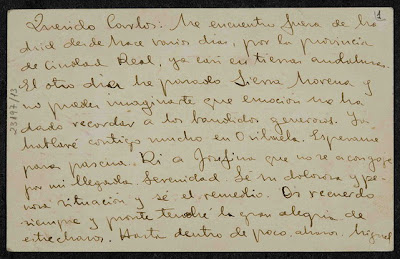 1
Querido Carlos: Me encuentro fuera de Ma
drid desde hace varios dias, por la provincia
de Ciudad Real, ya casi en tierras andaluzas.
El otro dia he pasado Sierra Morena y
no puedes imaginarte que emoción me ha
dado recordar a los bandidos generosos. Ya
hablaré contigo mucho en Orihuela. Esperame
para pascua. Di a Josefina que no se acongoje
por mi llegada. Serenidad. Sé su dolorosa y pe-
nosa situacion y sé el remedio. Os recuerdo
siempre y pronto tendré la gran alegria de
estrecharos. Hasta dentro de poco, abrazos. Miguel
23197/13